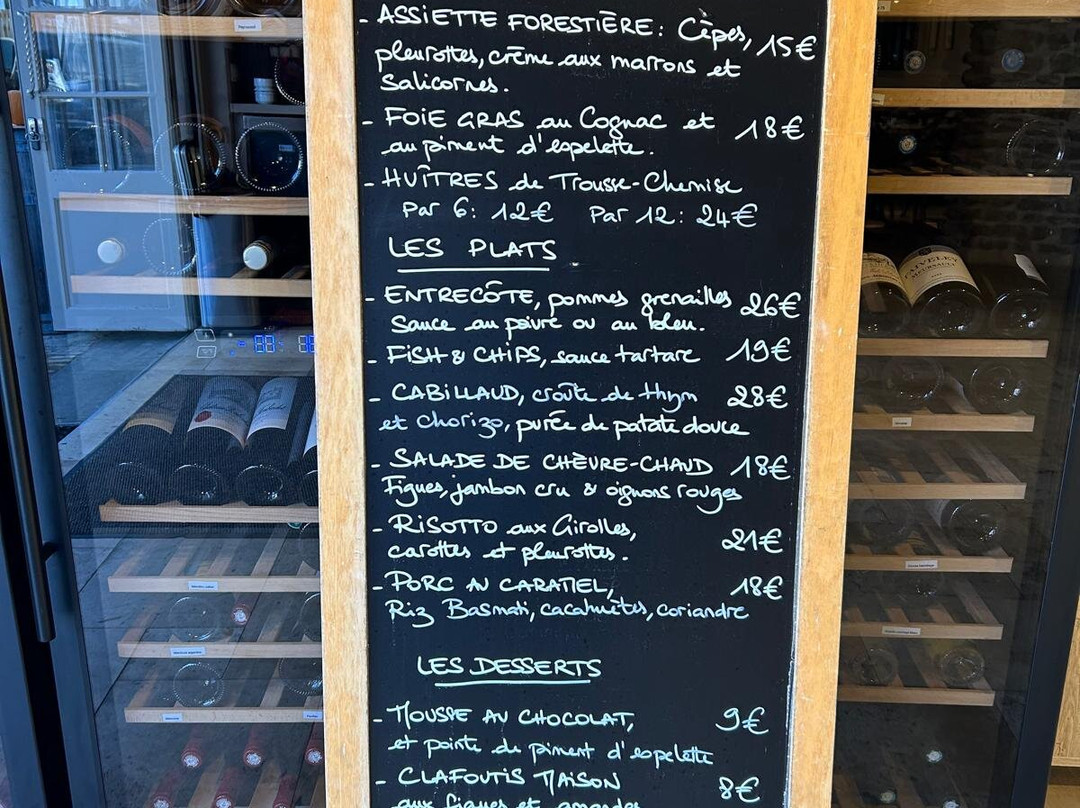 - ASSIETTE FORESTIÈRE : Cèpes, 15€
pleurottes, crème aux marrons et
Salicornes.
- FOIE GRAS au Cognac et 18€
au piment d'espelette.
- HUÎTRES de Trousse-Chemise
Par 6: 12€ Par 12: 24€
LES PLATS
- ENTRECÔTE, pommes grenailles 26€
Sauce au poivre ou au bleu.
- FISH & CHIPS, sauce tartare 19€
- CABILLAUD, croûte de thym 28€
et chorizo, purée de patate douce
- SALADE DE CHÈVRE-CHAUD 18€
Figues, jambon cru & oignons rouges
- RISOTTO aux Girolles, 21€
carottes et pleurottes.
- PORC AU CARAMEL, 18€
Riz Basmati, cacahuètes, coriandre
LES DESSERTS
- MOUSSE AU CHOCOLAT, 9€
et pointe de piment d'espelette
- CLAFOUTIS MAISON 8€
aux figues et amandes
FAIVELEY